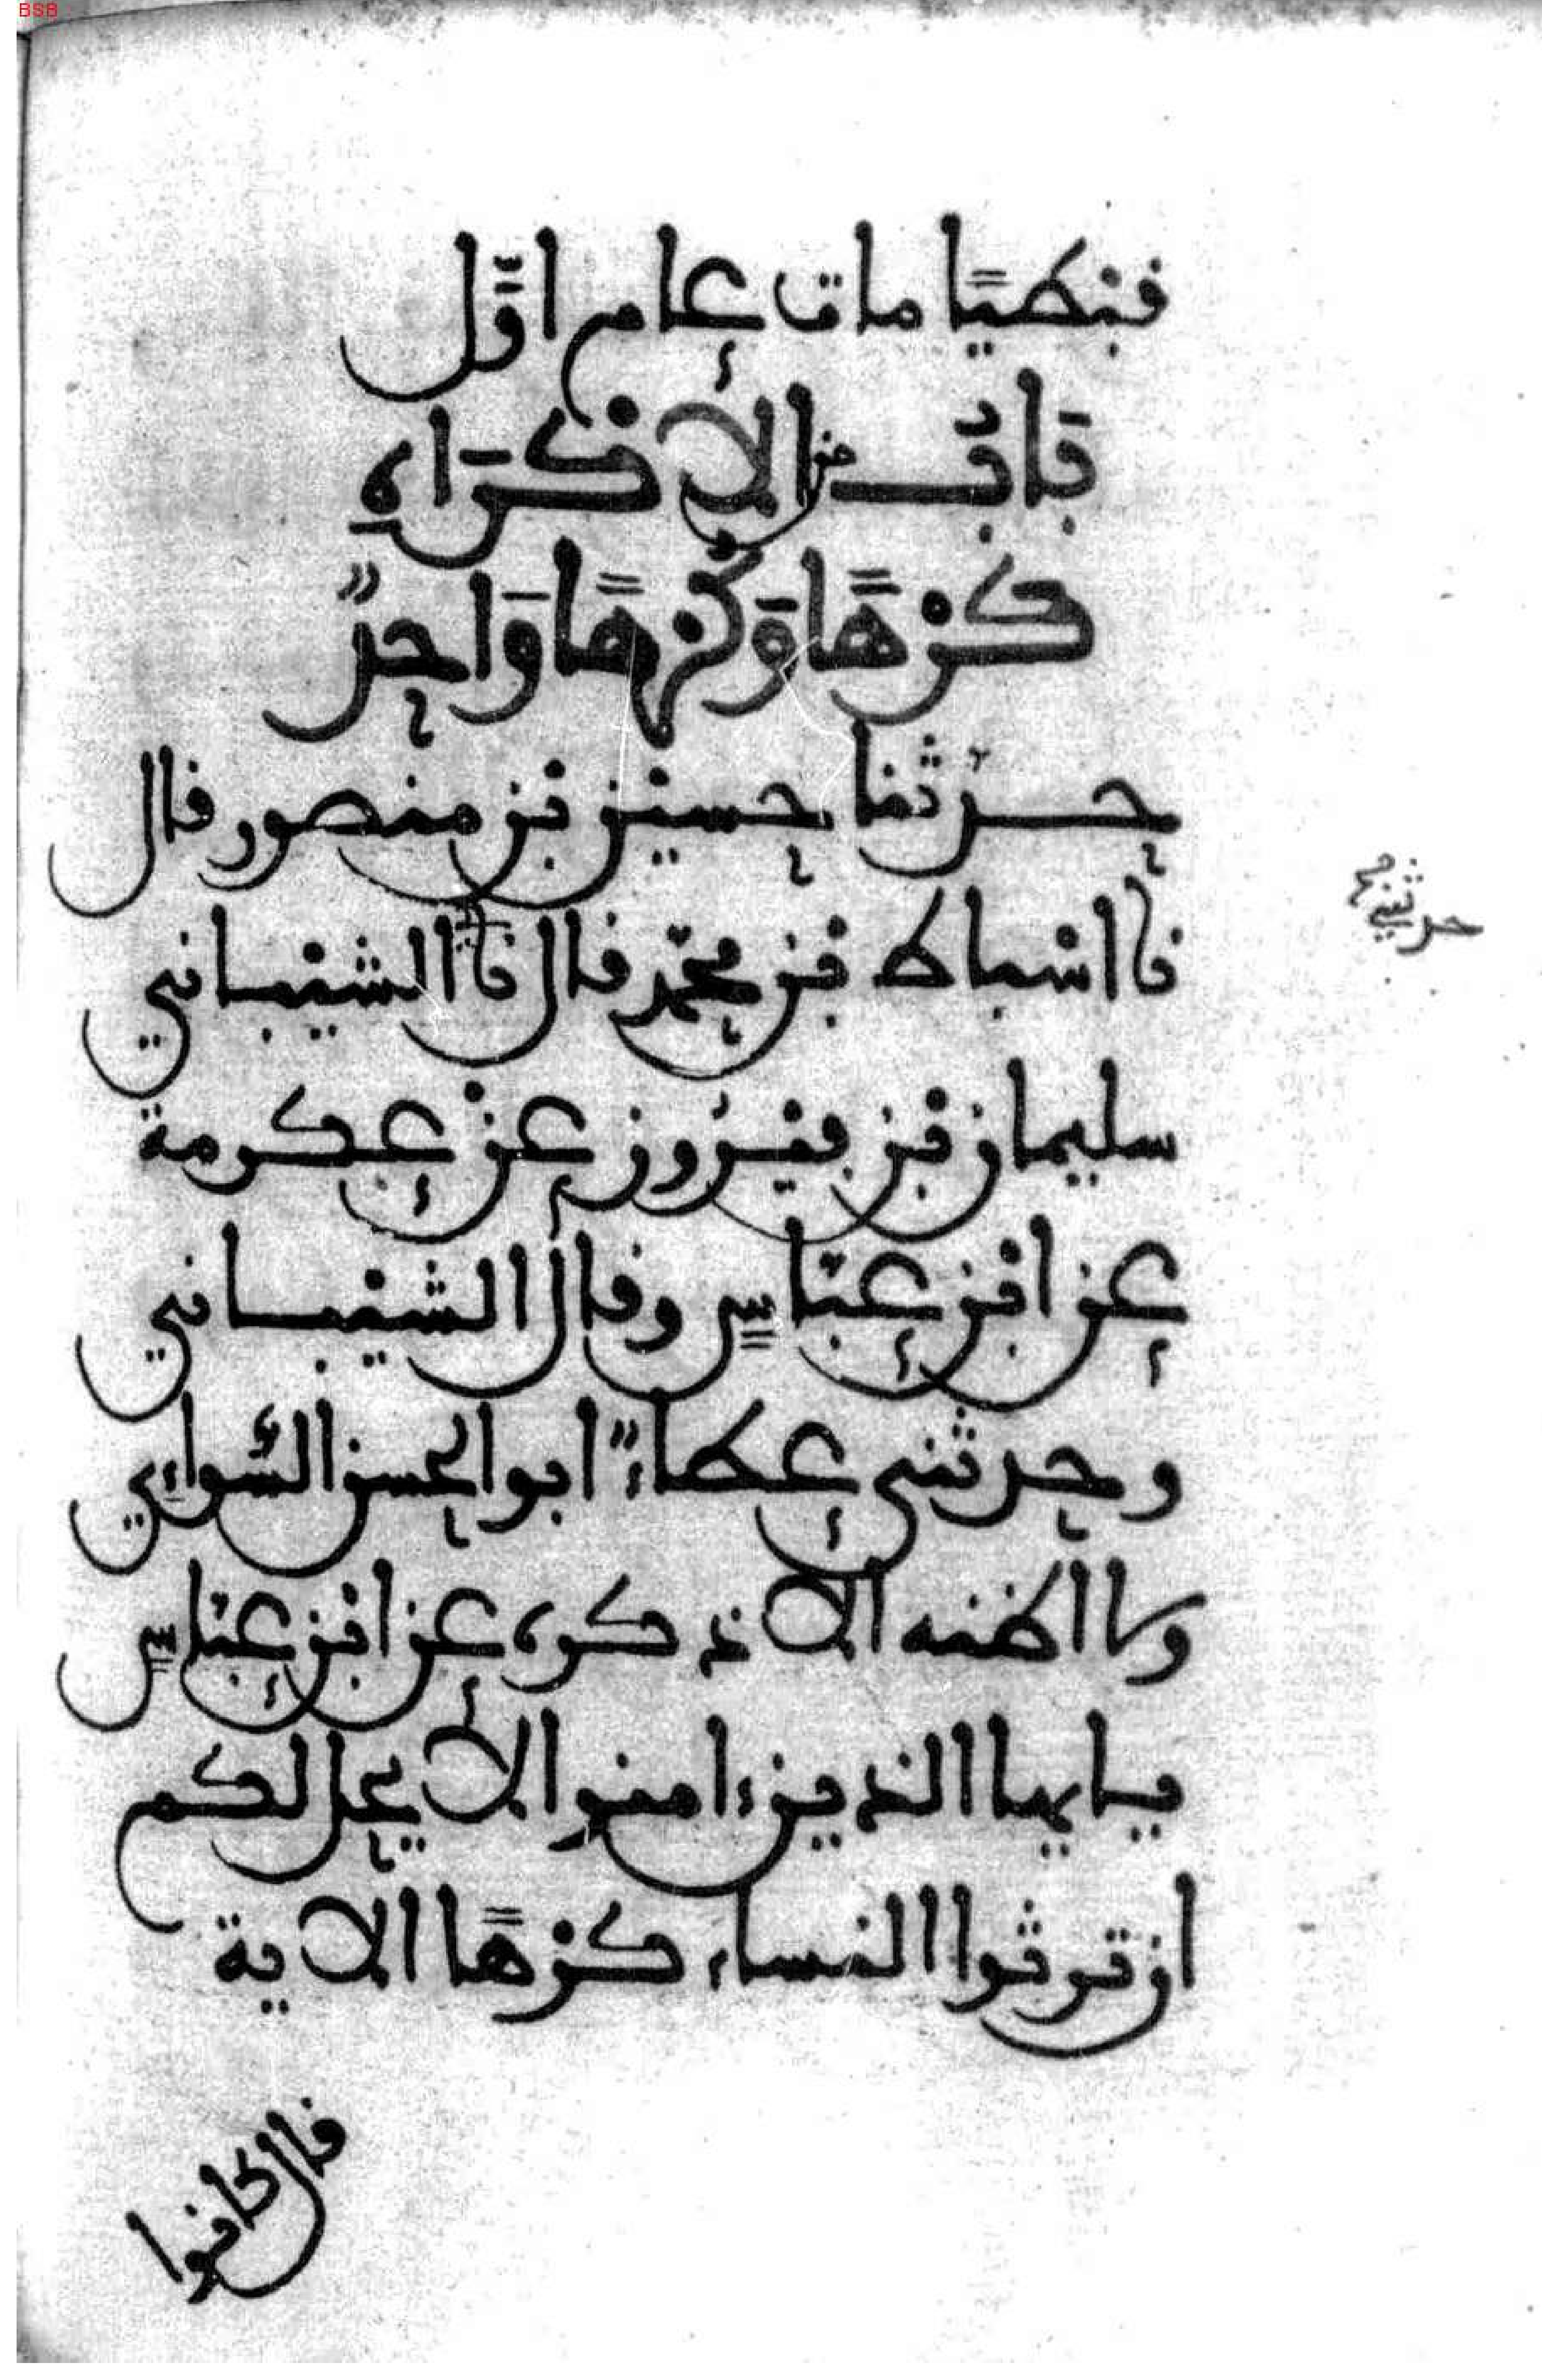 BSB
قبطيًا مات عام اوّل
بَابٌ من الاكرَاهِ
كَرْهًا وَكُرْهًا وَاحدٌ
حدثنا حسين بن منصور قال
حدثني
نا اسباط بن محمّد قال نا الشيباني
سليمان بن فيروز عن عكرمة
عن ابن عبّاسٍ وقال الشيباني
وحدثني عطاءٌ ابو الحسن السُّوائي
وما اظنه الا ذكره عن ابن عبّاسٍ
يايها الذين ءامنوا لا يحل لكم
ان ترثوا النساء كرْهًا الاية
قال كانوا